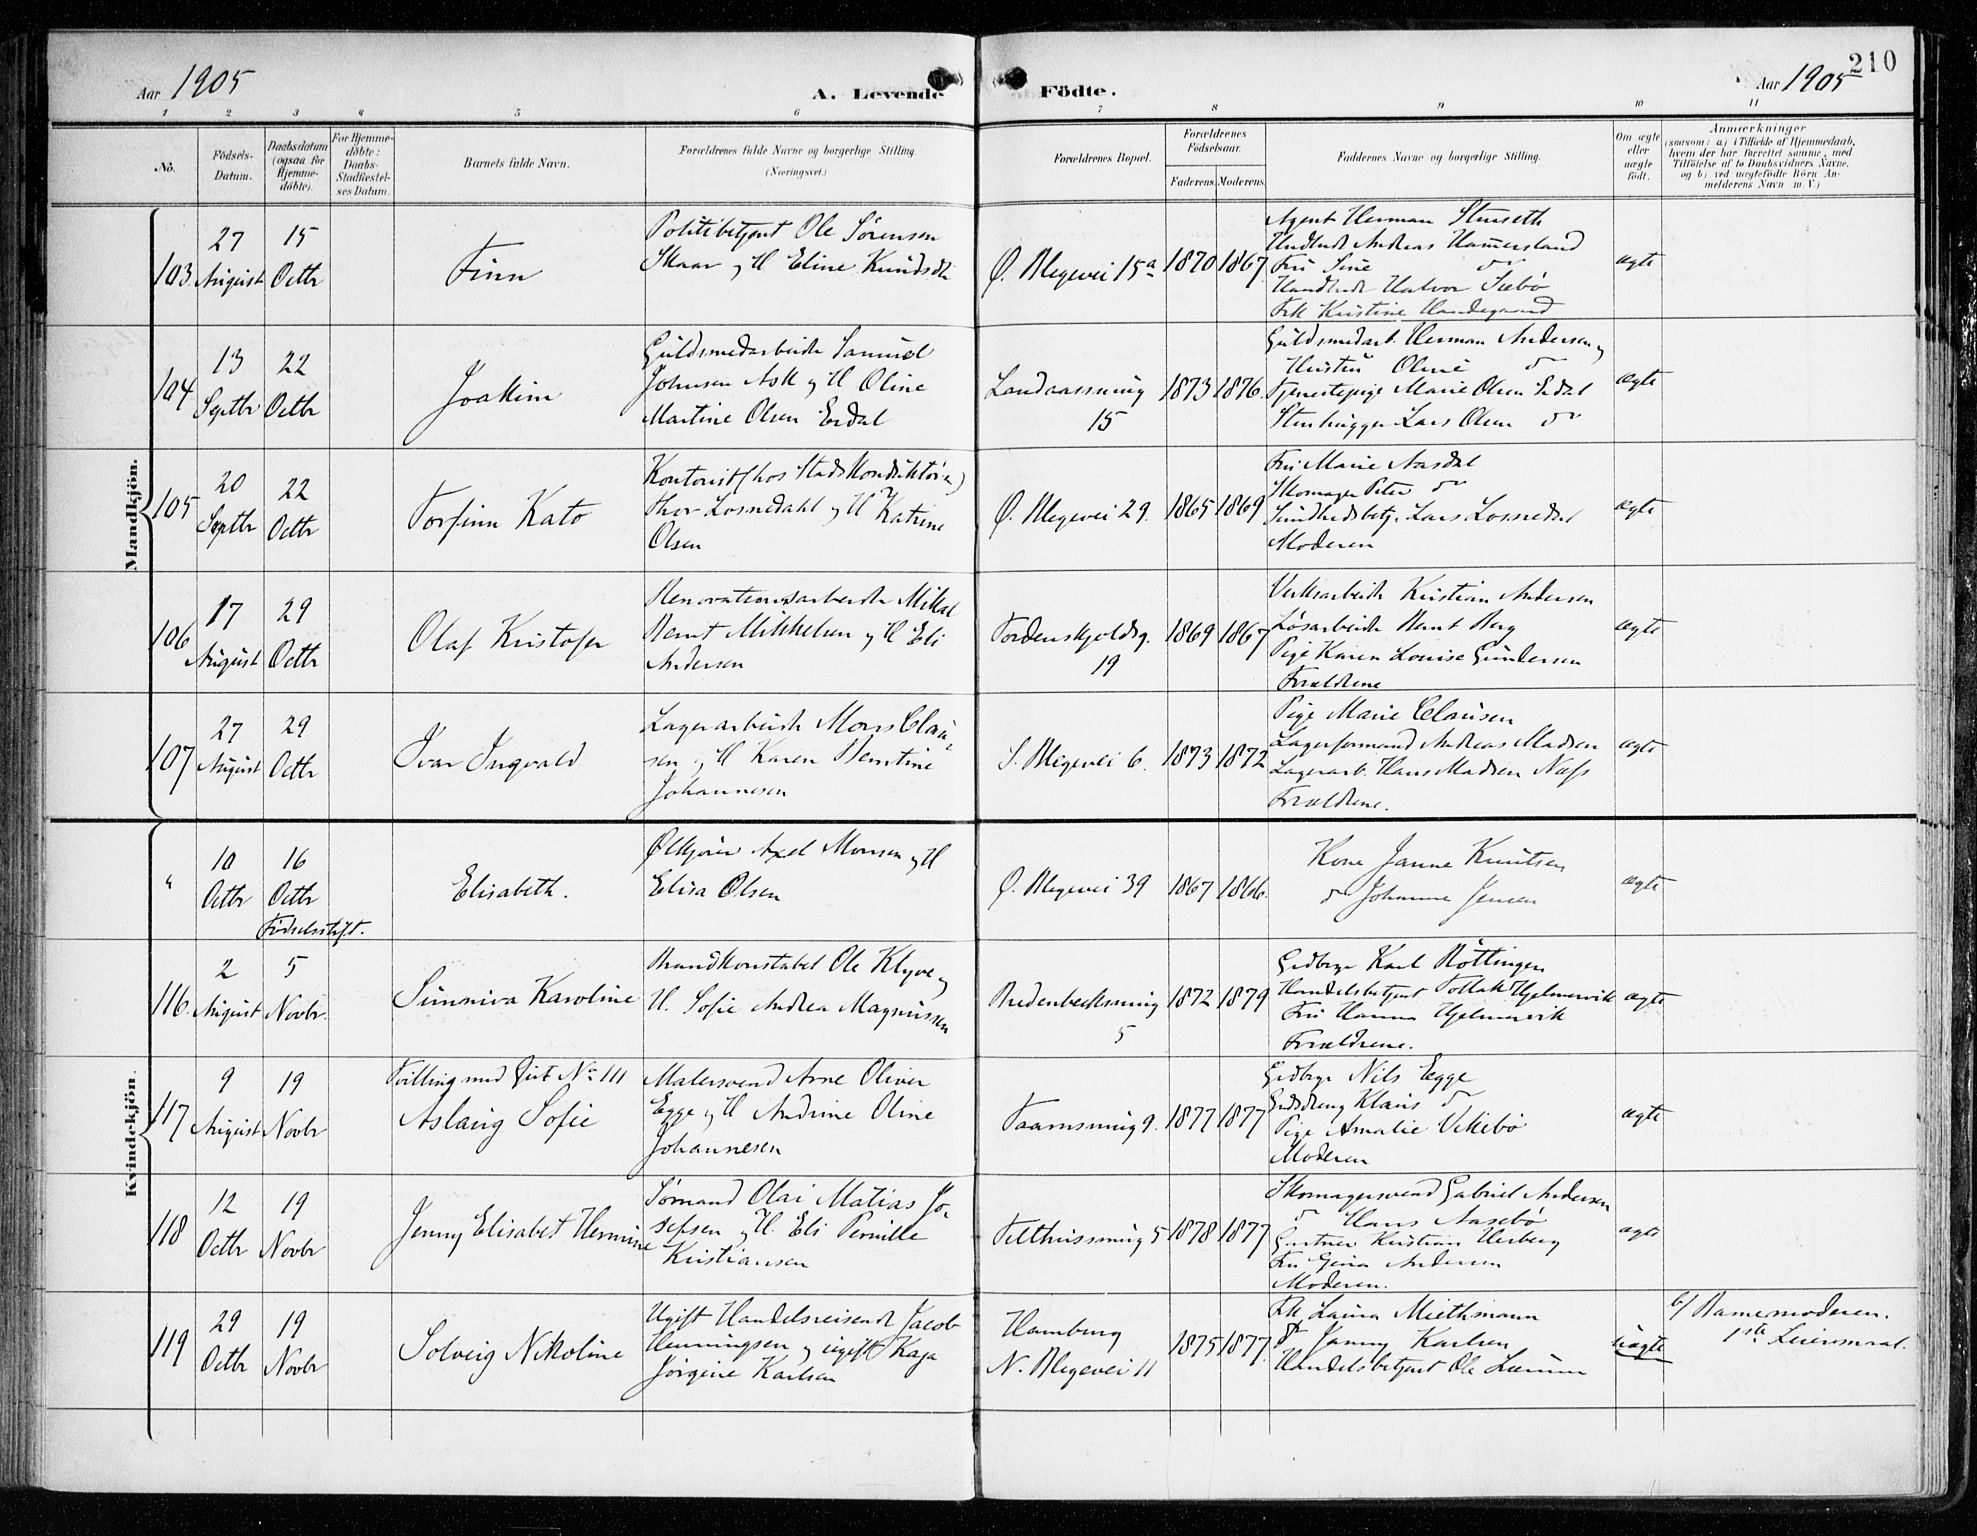 210
Aar 1905
A. Levende
Födte.
Aar 1905
1 2 3 4 5 6 7 8 9 10 11
No.
Födsels-
Datum.
Daabsdatum
(ogsaa for
Hjemme-
döbte).
For Hjemme-
döbte:
Daabs-
Stadfæstel-
ses Datum.
Barnets fulde Navn.
Forældrenes fulde Navne og borgerlige Stilling.
(Næringsvei.)
Forældrenes Bopæl.
Forældrenes
Födselsaar.
Faderens. Moderens.
Faddernes Navne og borgerlige Stilling.
Om ægte
eller
uægte
födt.
Anmærkninger
(saasom: a) i Tilfælde af Hjemmedaab,
hvem der har forrettet samme, med
Tilföielse af to Daabsvidners Navne,
og b) ved uægtefödte Börn An-
melderens Navn m. V.)
Mandkjön.
103
27
August
15
Octbr
Finn
Politibetjent Ole Sørensen
Skaar og H Eline Knudsdtr
Ø. Blegevei 15a
1870 1867
Agent Herman Stuseth
Andreas Hammersland
Fru Sine do
Halvor Sæbø
Frk Kristine
ægte
104
13
Septbr
22
Octbr
Joakim
Guldsmedarbeider Samuel
Johnsen Ask og H Oline
Martine Olsen Erdal
Landaassmug
15
1873 1876
Guldsmedarb. Herman Andersen og
Hustru Oline do
Tjenestepige Marie Olsen Erdal
Stenhugger Lars Olsen do
ægte
105
20
Septbr
22
Octbr
Torfinn Kato
Kontorist (hos Stadskonduktøren)
Thor Losnedahl og H Katrine
Olsen
Ø. Blegevei 29.
1865 1869
Fru Marie Aasdal
Skomager Peter do
Sundhedsbetj. Lars Losnedal
Moderen
ægte
106
17
August
29
Octbr
Olaf Kristofer
Renovationsarbeider Mikal
Bernt Mikkelsen og H Eli
Andersen
Tordenskjoldsg.
19
1869 1867
Verksarbeider Kristian Andersen
Løsarbeider Bernt Berg
Pige Karen Lovise Gundersen
Forældrene
ægte
107
27
August
29
Octbr
Ivar Ingvald
Lagerarbeider Mons Clau-
sen og H Karen Berntine
Johannesen
S. Blegevei 6.
1873 1872
Pige Marie Clausen
Lagerformand Andreas Madsen
Lagerarb. Hans Madsen Næss
Forældrene.
ægte
Kvindekjön.
"
10
Octbr
16
Octbr
Fødselsstift.
Elisabeth.
Ølkjører Axel Monsen og H
Elisa Olsen
Ø. Blegevei 39
1867 1866.
Kone Janne Knutsen
do Johanne Jensen
ægte
116.
2
August
5
Novbr.
Sunniva Karoline
Brandkonstabel Ole Klyve og
H. Sofie Andrea Magnussen
Bredenbecksmug
5
1872 1879
Gedbryr Karl Røttingen
Handelsbetjent Tollak Hjelmervik
Fru Hanna Hjelmervik
Forældrene.
ægte
117
9
August
19
Novbr
Tvilling med Gut No 111
Aslaug Sofie
Malersvend Arne Oliver
Egge og H Andrine Oline
Johannesen
Taarnsmug 9.
1877 1877
Nils Egge
Klaus do
Pige Amalie Vikebø
Moderen
ægte
118
12
Octbr
19
Novbr
Jenny Elisabet Hermine
Sømand Olai Matias Jo-
sefsen og H. Eli Pernille
Kristiansen
Telthussmug 5
1878 1877
Skomagersvend Gabriel Andersen
do Hans Aasebø
Gartner Kristian Herberg
Fru Gina Andersen
Moderen.
ægte
119
29
Octbr
19
Novbr
Solveig Nikoline
Ugift Handelsreisende Jacob
Henningsen og ugift Kaja
Jørgine Karlsen
Hamburg
N. Blegevei 11
1875 1877
Frk Laura Miethmann
do Janny Karlsen
Handelsbetjent Ole
uægte
b/ Barnemoderen.
1ste Leiersmaal.